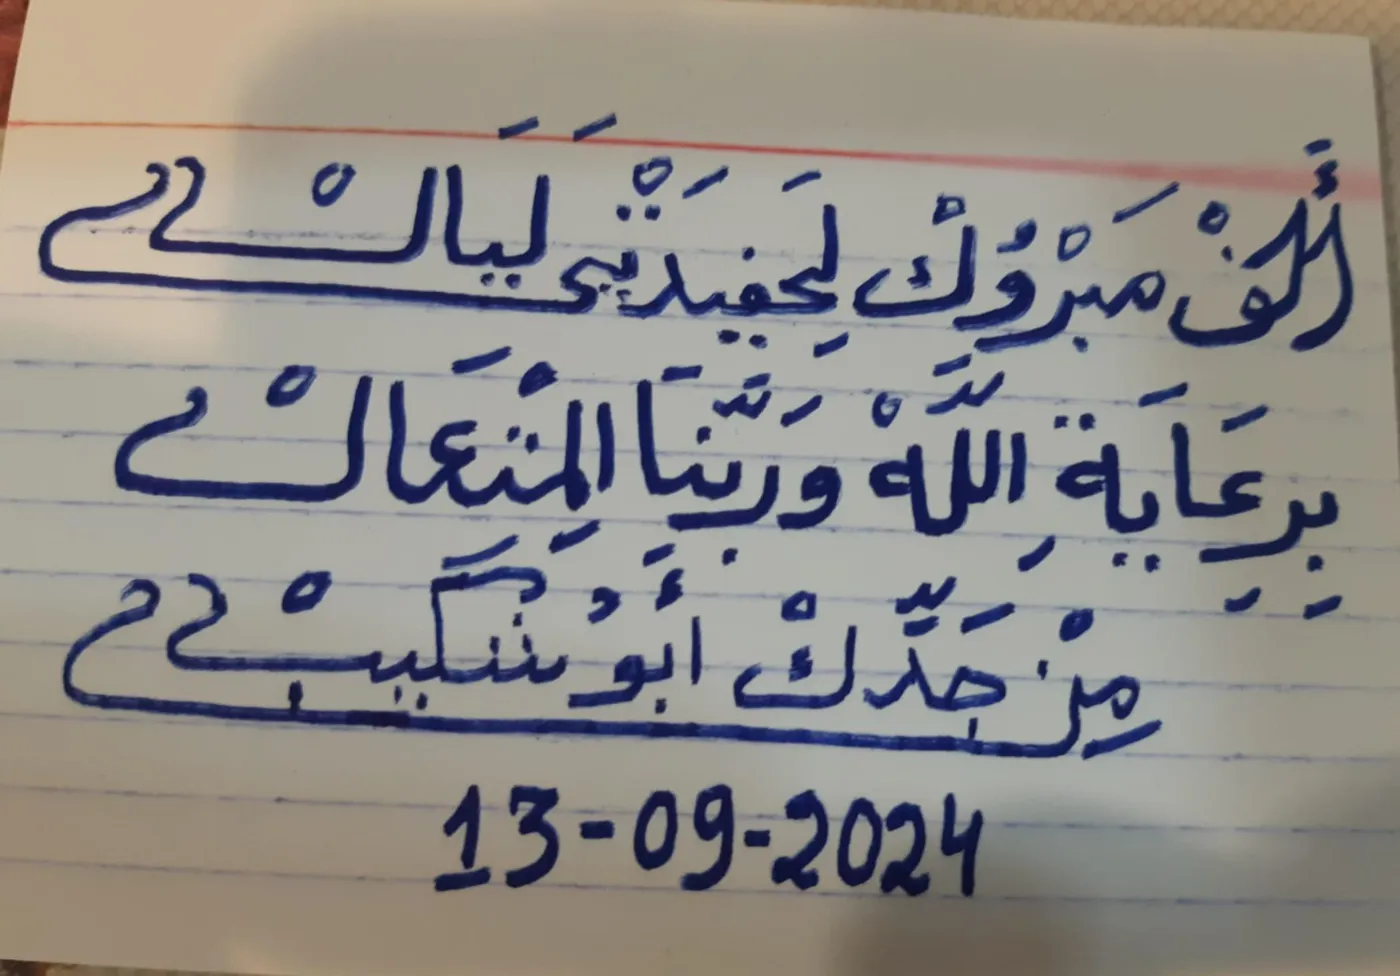 أَلفْ مَبْرُوُكْ لِحَفيدَتْيَ لَيَالْ
بِرِعَايَةِ اللَّهْ وَرَبَّنَا المِتْعَالْ
مِنْ جَدِّكْ أَبُو شَكيبْ
13-09-2024